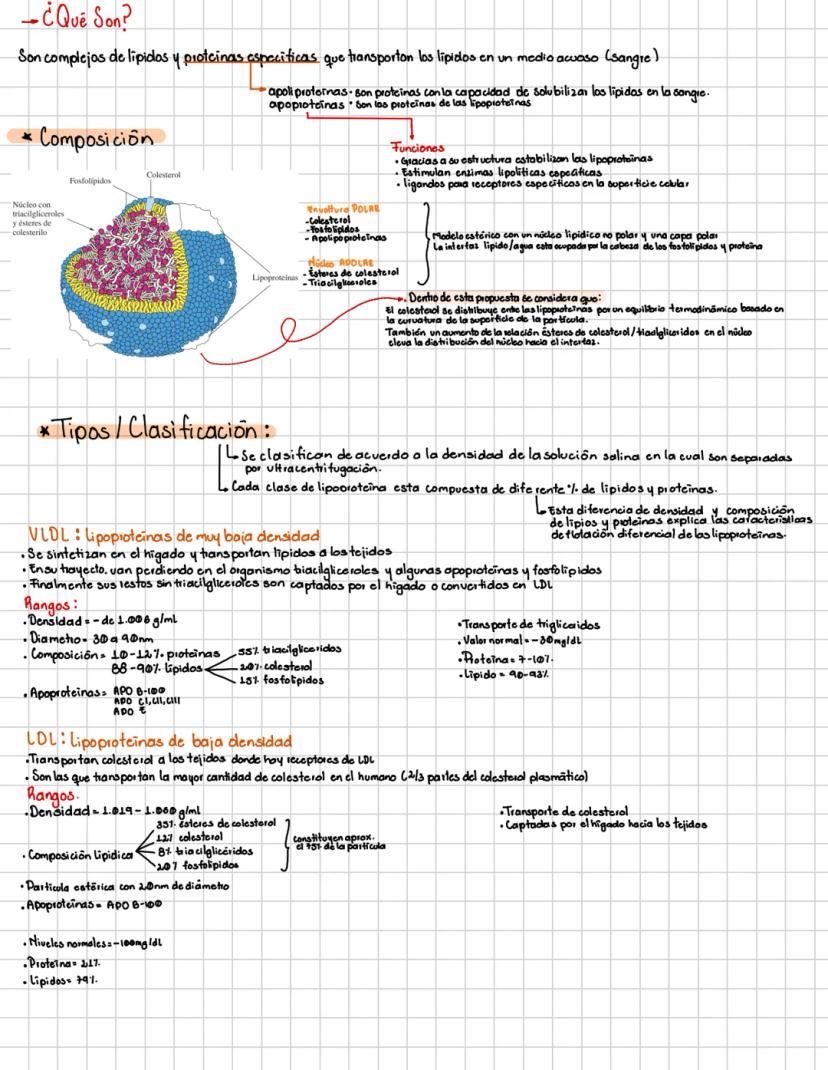 → ¿Qué Son?
Son complejos de lípidos y proteínas específicas que transportan los lípidos en un medio acuoso (sangre)
apoliproteínas · son proteínas con la capacidad de solubilizar los lípidos en la sangre.
apoproteínas · Son las proteínas de las lipoproteínas
* Composición
Funciones
· Gracias a su estructura estabilizan las lipoproteínas
· Estimulan enzimas lipolíticas específicas
· ligandos para receptores específicos en la superficie celular
Fosfolípidos
Colesterol
Núcleo con
triacilgliceroles
y ésteres de
colesterilo
Lipoproteínas
Envoltura POLAR
-Colesterol
-Fosfolípidos
- Apolipoproteínas
Núcleo APOLAR
- Ésteres de colesterol
- Triacilgliceroles
Modelo esférico con un núcleo lipídico no polar y una capa polar
La interfaz lípido/agua esta ocupada por la cabeza de los fosfolípidos y proteína
· Dentro de esta propuesta se considera que:
El colesterol se distribuye entre las lipoproteínas por un equilibrio termodinámico basado en
la curvatura de la superficie de la partícula.
También un aumento de la relación ésteres de colesterol/triacilglicéridos en el núcleo
eleva la distribución del núcleo hacia el interfaz.
* Tipos / Clasificación :
Se clasifican de acuerdo a la densidad de la solución salina en la cual son separadas
por ultracentrifugación.
Cada clase de lipoproteína esta compuesta de diferente % de lípidos y proteínas.
Esta diferencia de densidad y composición
de lipios y proteínas explica las características
de flotación diferencial de las lipoproteínas.
VLDL : lipoproteínas de muy baja densidad
· Se sintetizan en el hígado y transportan lípidos a los tejidos
· En su trayecto, van perdiendo en el organismo triacilgliceroles y algunas apoproteínas y fosfolípidos
· Finalmente sus restos sin triacilgliceroles son captados por el hígado o convertidos en LDL
Rangos :
· Densidad = - de 1.006 g/ml
· Diametro= 30 a 90nm
· Composición= 10-12% proteínas
88-90% lípidos
55% triacilglicéridos
20% colesterol
15% fosfolípidos
· Apoproteínas= APO B-100
APO CI,CII,CIII
APO E
·Transporte de triglicéridos
· Valor normal = -30mg/dL
·Proteína= 7-10%
·Lípido= 90-93%
LDL : Lipoproteínas de baja densidad
·Transportan colesterol a los tejidos donde hay receptores de LDL
· Son las que transportan la mayor cantidad de colesterol en el humano (2/3 partes del colesterol plasmático)
Rangos.
· Densidad = 1.019 - 1.060 g/ml
· Composición lipídica
35% ésteres de colesterol
12% colesterol
8% triacilglicéridos
20% fosfolípidos
constituyen aprox.
el 75% de la partícula
·Transporte de colesterol
· Captadas por el hígado hacia los tejidos
· Partícula esférica con 20nm de diámetro
· Apoproteínas= APO B-100
· Niveles normales= -100mg/dL
· Proteína= 21%
· Lípidos= 79%